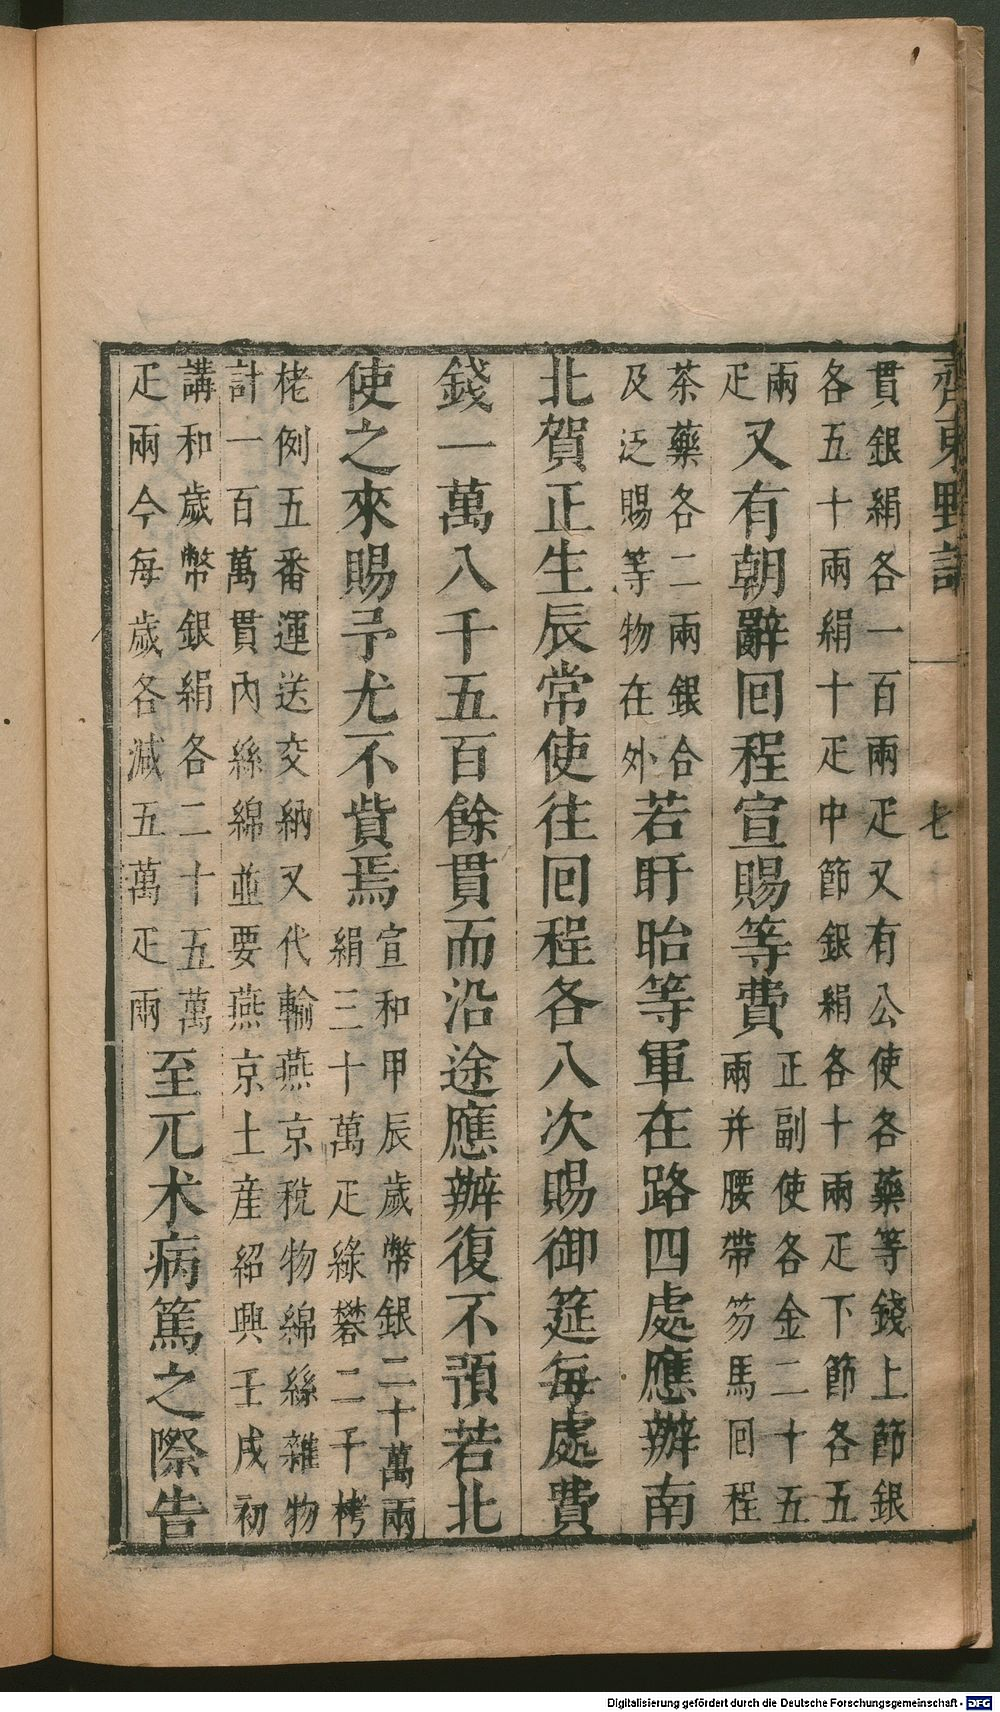 齊東野語
七
貫銀絹各一百兩疋又有公使各藥等錢上節銀
各五十兩絹十疋中節銀絹各十兩疋下節各五
兩
疋
又有朝辭回程宣賜等費
正副使各金二十五
兩并腰帶笏馬回程
茶藥各二兩銀合
及泛賜等物在外
若盱眙等軍在路四處應辦南
北賀正生辰常使往回程各八次賜御筵每處費
錢一萬八千五百餘貫而沿途應辦復不預若北
使之來賜予尤不貲焉
宣和甲辰歲幣銀二十萬兩
絹三十萬疋綠礬二千栲
栳例五番運送交納又代輸燕京稅物綿絲雜物
計一百萬貫內絲綿並要燕京土産紹興壬戌初
講和歲幣銀絹各二十五萬
疋兩今每歲各減五萬疋兩
至兀术病篤之際告
Digitalisierung gefördert durch die Deutsche Forschungsgemeinschaft - DFG